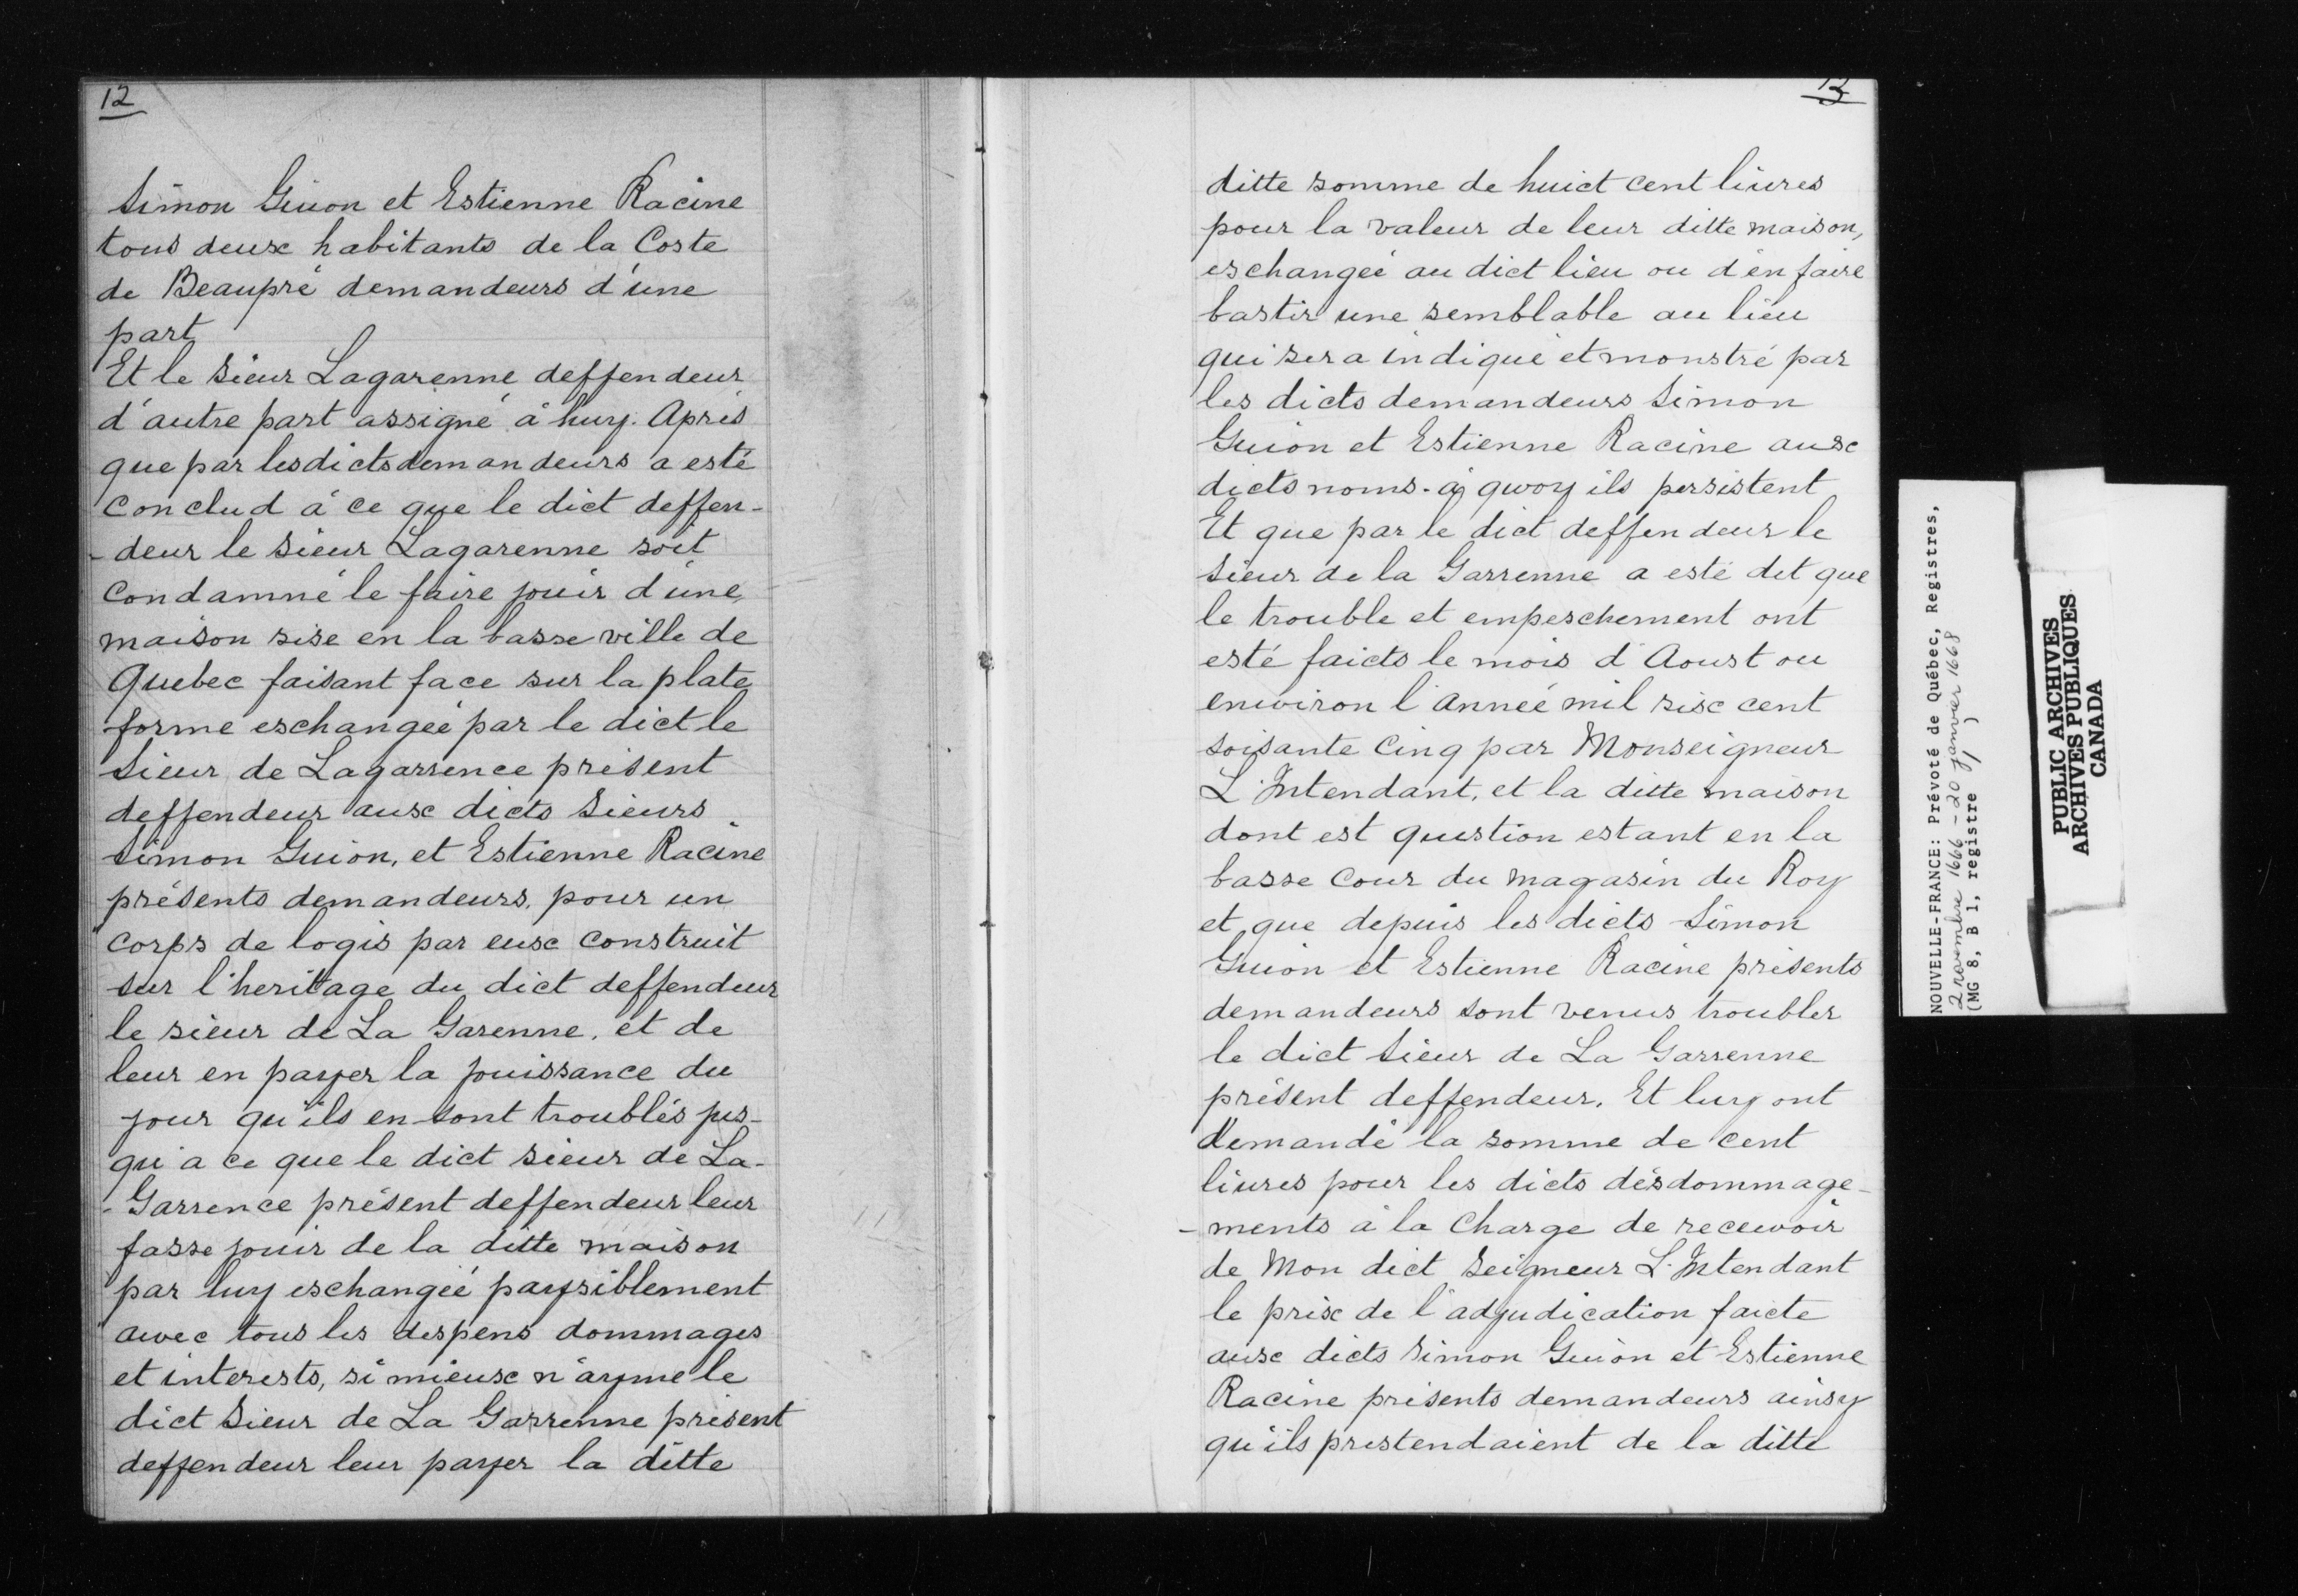 12
Simon Guion et Estienne Racine
tous deux habitants de la Coste
de Beaupré demandeurs d'une
part
Et le Sieur Lagarenne deffendeur
d'autre part assigné à huy. Après
que par lesdicts demandeurs a esté
Conclud à ce que le dict deffen-
-deur le Sieur Lagarenne soit
Condamné le faire jouir d'une
maison sise en la basse ville de
Quebec faisant face sur la plate
forme eschangée par le dict le
Sieur de Lagarrence présent
deffendeur aux dicts Sieurs
Simon Guion, et Estienne Racine
présents demandeurs, pour un
Corps de logis par eux Construit
sur l'heritage du dict deffendeur
le sieur de La Garenne, et de
leur en payer la jouissance du
jour qu'ils en sont troublés jus-
qu'a ce que le dict Sieur de La-
-Garrence présent deffendeur leur
fasse jouir de la ditte maison
par luy eschangée paysiblement
avec tous les despens dommages
et interests, si mieux n'ayme le
dict Sieur de La Garrenne présent
deffendeur leur payer la ditte
13
ditte somme de huict cent liures
pour la valeur de leur ditte maison,
eschangée au dict lieu ou d'en faire
bastir une semblable au lieu
qui sera indiqué et monstré par
les dicts demandeurs Simon
Guion et Estienne Racine aux
dicts noms. à quoy ils persistent
Et que par le dict deffendeur le
Sieur de la Garrenne a esté dit que
le trouble et empeschement ont
esté faicts le mois d'Aoust ou
enuiron l'année mil six cent
soisante Cinq par Monseigneur
L'Intendant, et la ditte maison
dont est question estant en la
basse Cour du magasin du Roy
et que depuis les dicts Simon
Guion et Estienne Racine présents
demandeurs sont venus troubler
le dict Sieur de La Garrenne
présent deffendeur. Et luy ont
demandé la somme de cent
liures pour les dicts désdommage-
-ments à la Charge de receuoir
de Mon dict Seigneur L'Intendant
le prix de l'adjudication faicte
aux dicts Simon Guion et Estienne
Racine présents demandeurs ainsy
qu'ils prestendaient de la ditte
NOUVELLE-FRANCE: Prévoté de Québec, Registres,
2 novembre 1666 - 20 janvier 1668
(MG 8, B 1, registre 1)
PUBLIC ARCHIVES
ARCHIVES PUBLIQUES
CANADA